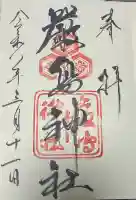 奉拝
嚴島神社
令和八年三月十一日